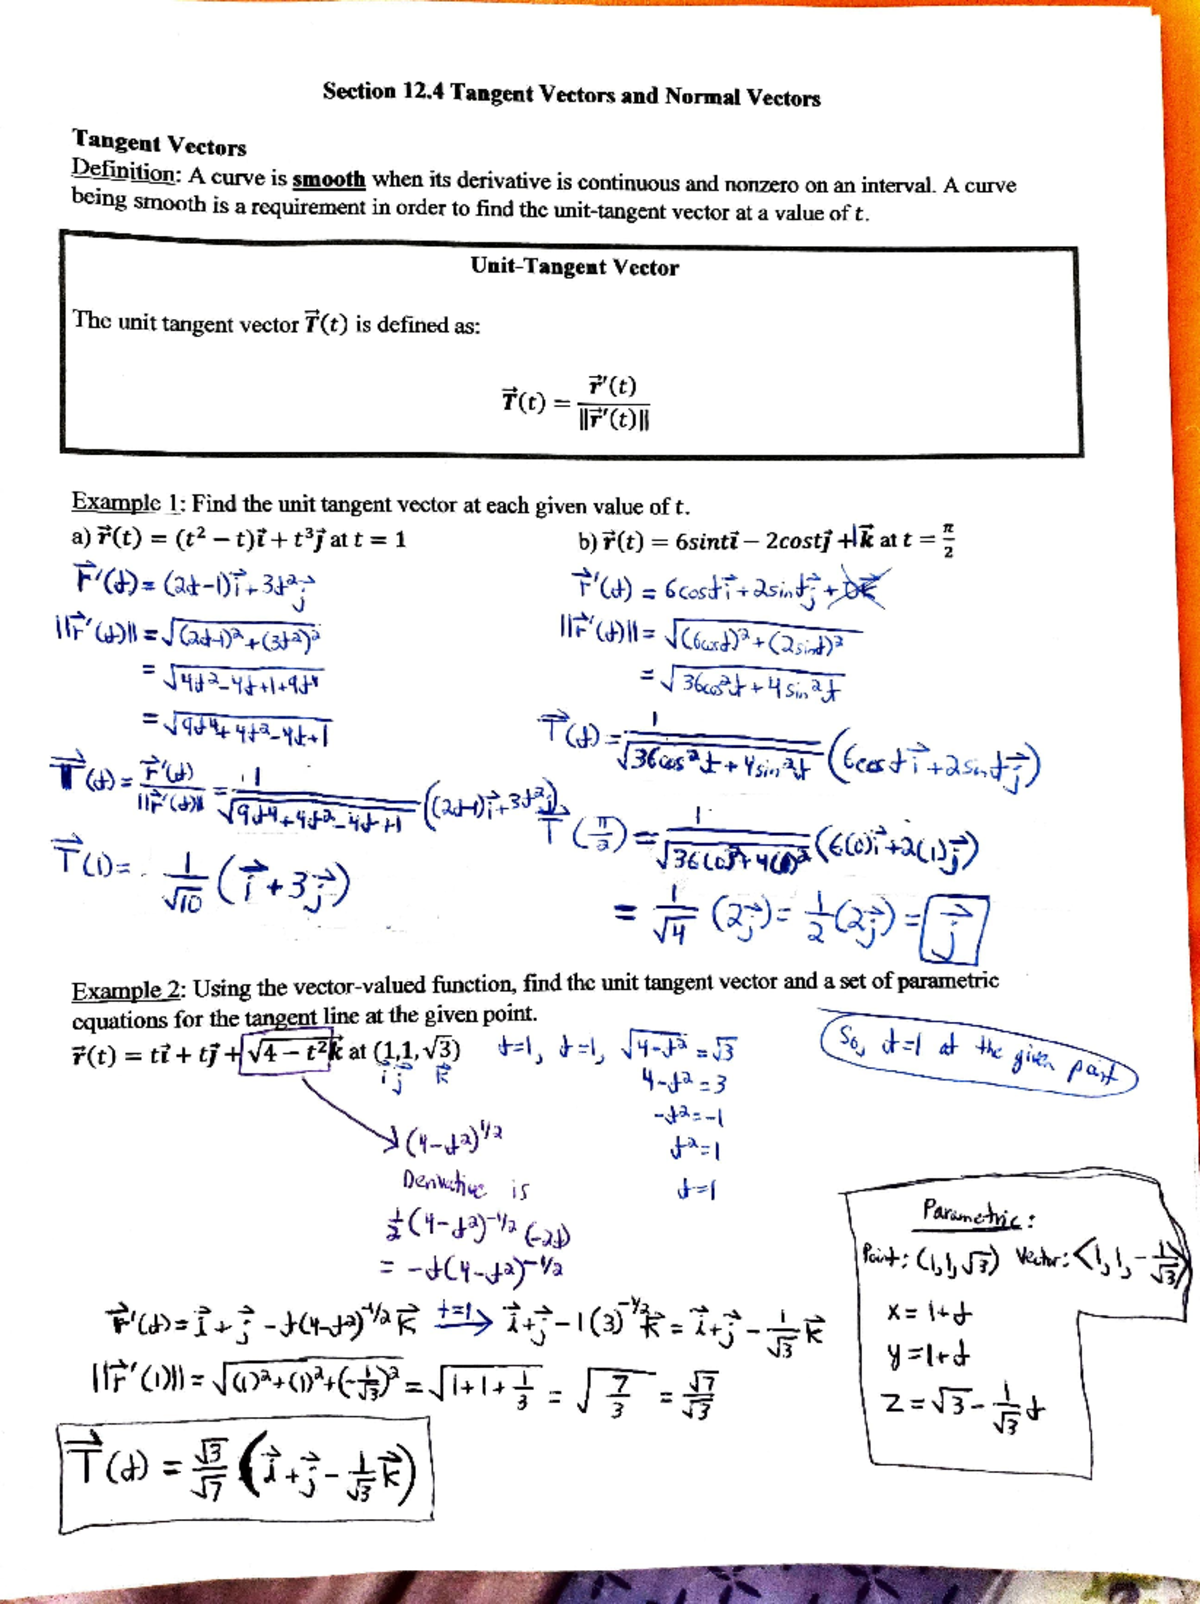 Section 12.4 Tangent Vectors and Normal Vectors
Tangent Vectors
Definition: A curve is smooth when its derivative is continuous and nonzero on an interval. A curve
being smooth is a requirement in order to find the unit-tangent vector at a value of t.
Unit-Tangent Vector
The unit tangent vector T⃗(t) is defined as:
T⃗(t) = r⃗′(t) / ‖r⃗′(t)‖
Example 1: Find the unit tangent vector at each given value of t.
a) r⃗(t) = (t² − t)i⃗ + t³j⃗ at t = 1
r⃗'(t) = (2t-1)i⃗ + 3t²j⃗
||r⃗'(t)|| = √((2t-1)² + (3t²)²)
= √(4t²-4t+1+9t⁴)
= √(9t⁴+4t²-4t+1)
T⃗(t) = r⃗'(t)/||r⃗'(t)|| = 1/√(9t⁴+4t²-4t+1) ((2t-1)i⃗+3t²j⃗)
T⃗(1) = 1/√10 (i⃗+3j⃗)
b) r⃗(t) = 6sinti⃗ − 2costj⃗ +1k⃗ at t = π/2
r⃗'(t) = 6costi⃗ + 2sintj⃗ + 0k⃗
||r⃗'(t)|| = √((6cost)² + (2sint)²)
= √(36cos²t + 4sin²t)
T⃗(t) = 1/√(36cos²t + 4sin²t) (6costi⃗ + 2sintj⃗)
T⃗(π/2) = 1/√(36(0)²+4(1)²) (6(0)i⃗+2(1)j⃗)
= 1/√4 (2j⃗) = 1/2 (2j⃗) = j⃗
Example 2: Using the vector-valued function, find the unit tangent vector and a set of parametric
equations for the tangent line at the given point.
r⃗(t) = ti⃗ + tj⃗ + √(4 − t²)k⃗ at (1,1,√3) t=1, t=1, √(4-t²) = √3
i⃗ j⃗ k⃗
4-t² = 3
-t² = -1
t² = 1
t=1
So, t=1 at the given point
(4-t²)^(1/2)
Derivative is
1/2 (4-t²)^(-1/2) (-2t)
= -t(4-t²)^(-1/2)
r⃗'(t) = i⃗ + j⃗ - t(4-t²)^(-1/2) k⃗ t=1→ i⃗+j⃗-1(3)^(-1/2) k⃗ = i⃗+j⃗-1/√3 k⃗
||r⃗'(1)|| = √((1)²+(1)²+(-1/√3)²) = √(1+1+1/3) = √(7/3) = √7/√3
T⃗(t) = √3/√7 (i⃗+j⃗-1/√3 k⃗)
Parametric:
Point: (1,1,√3) Vector: <1,1,-1/√3>
x = 1+t
y = 1+t
z = √3 - 1/√3 t